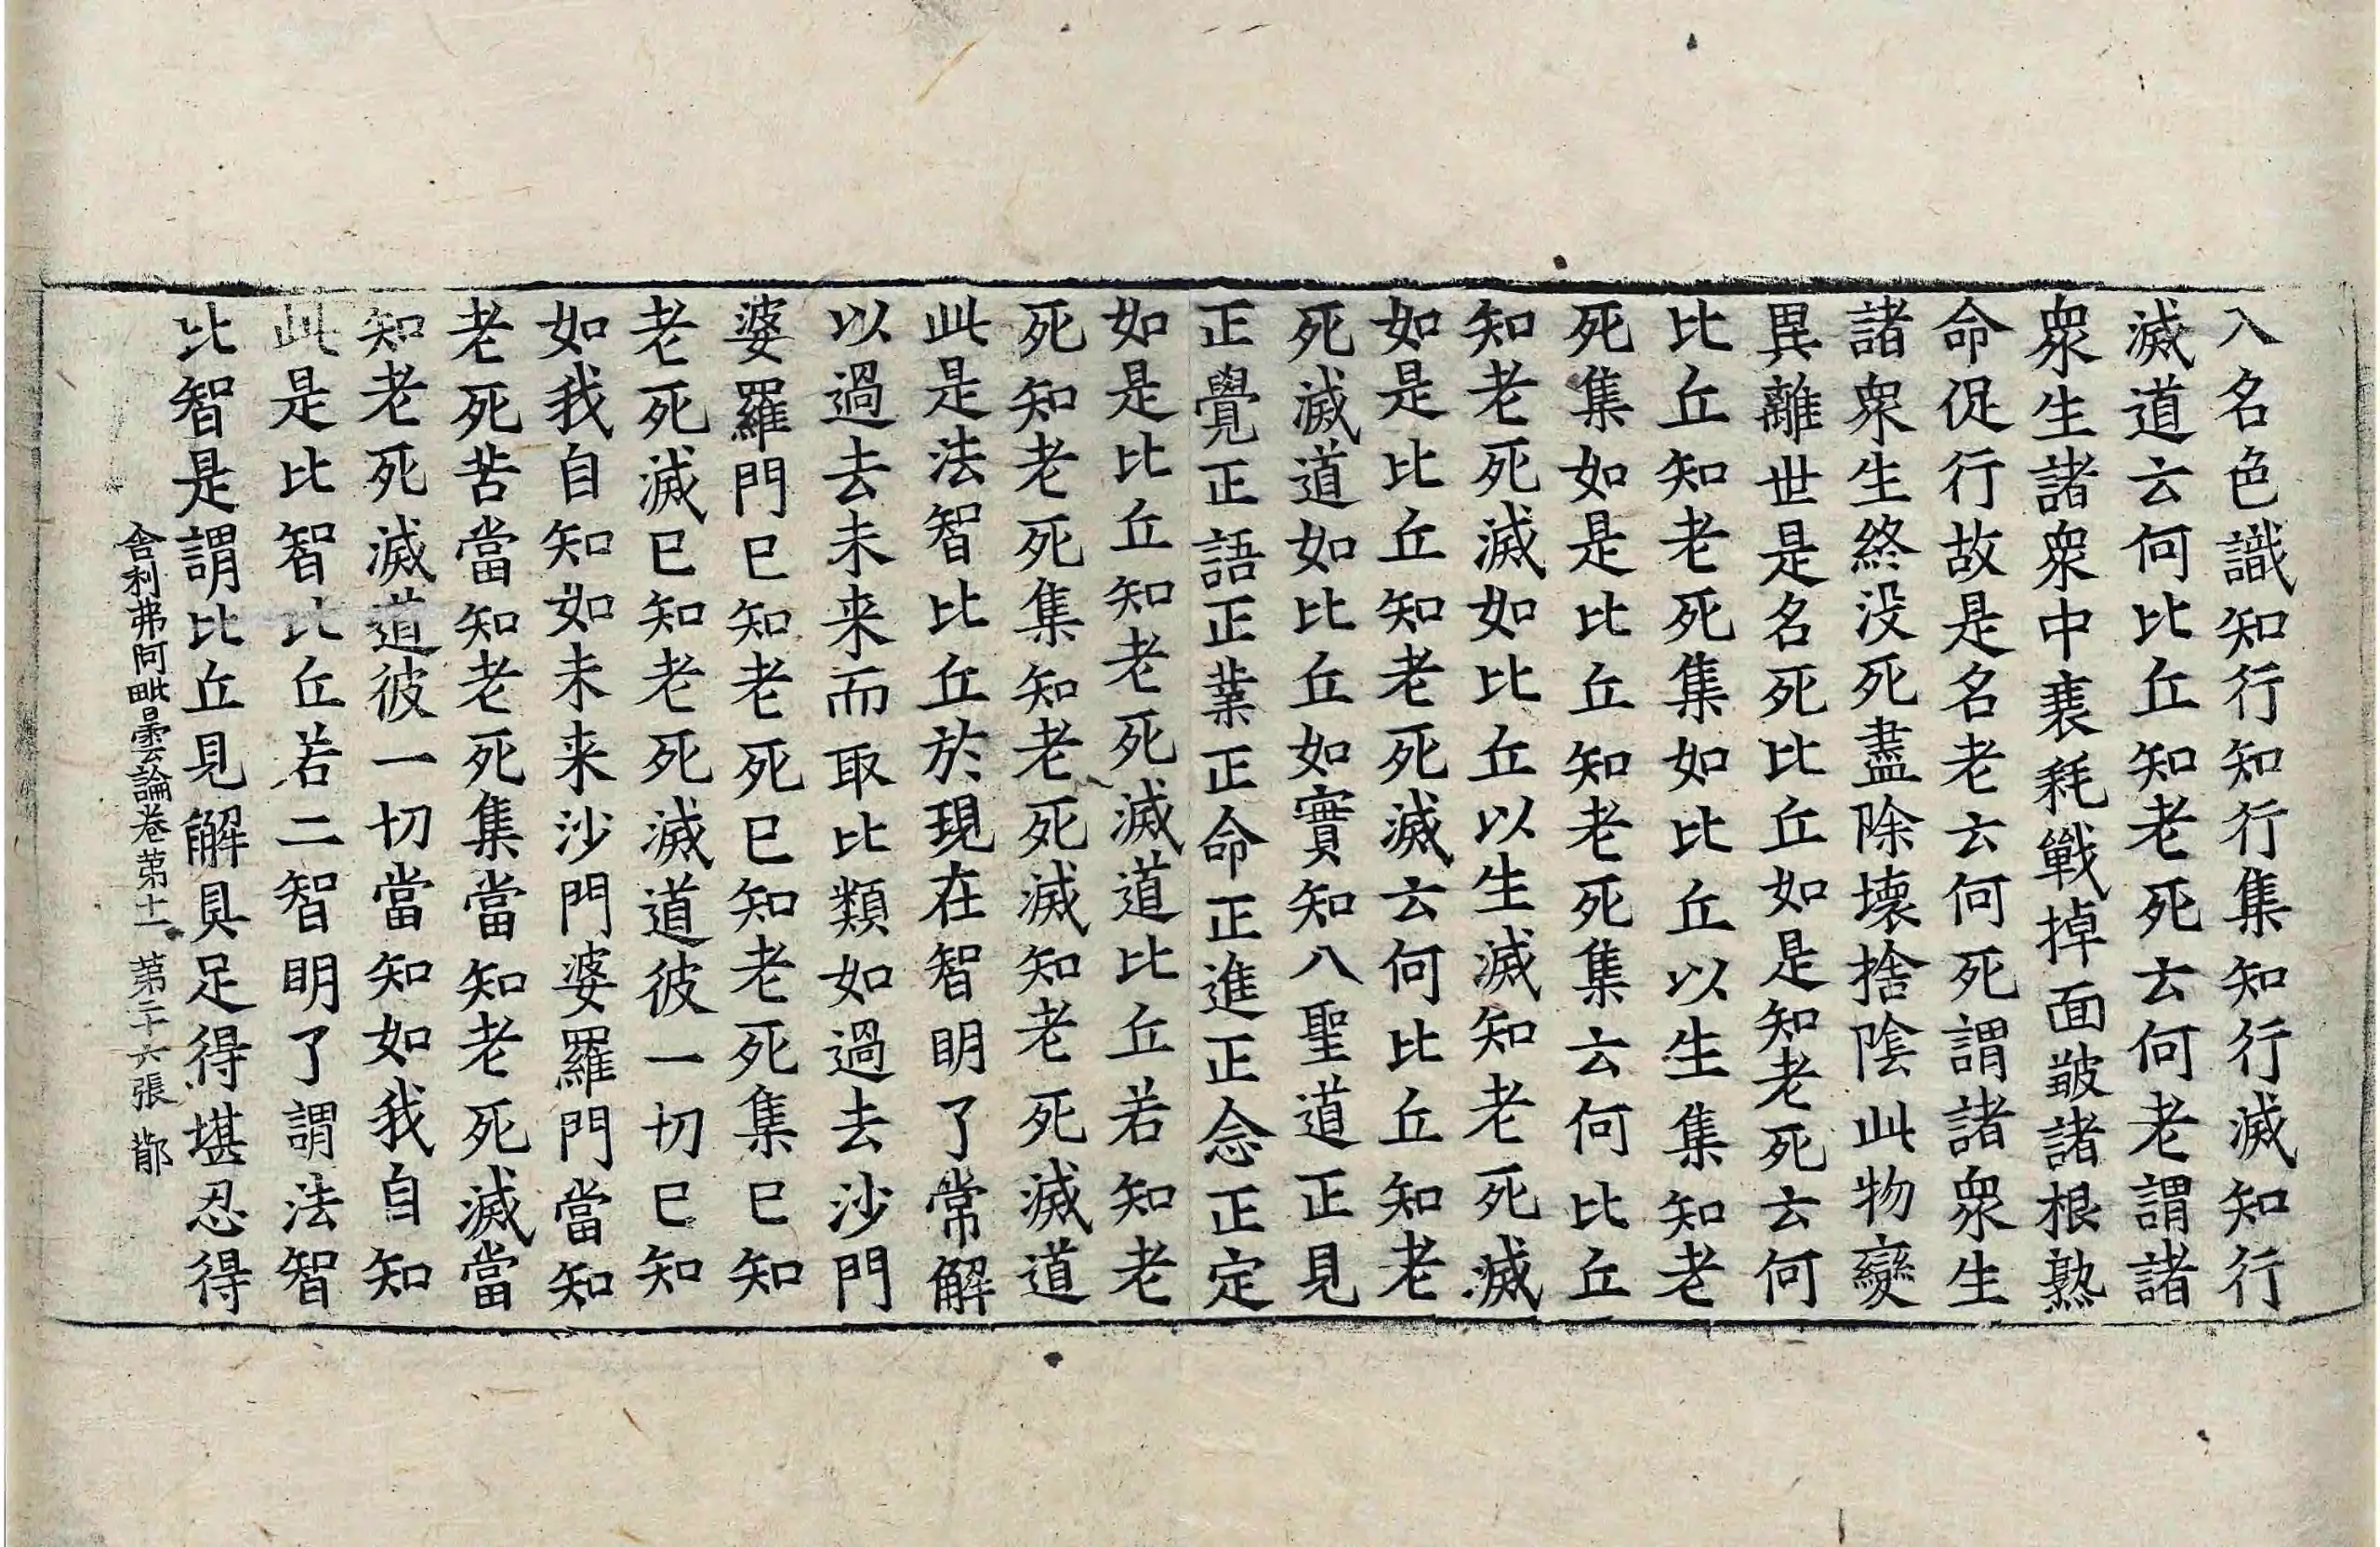 入名色識知行知行集知行滅知行
滅道云何比丘知老死云何老謂諸
衆生諸衆中衰耗戰掉面皺諸根熟
命促行故是名老云何死謂諸衆生
諸衆生終没死盡除壞捨陰此物變
異離世是名死比丘如是知老死云何
比丘知老死集如比丘以生集知老
死集如是比丘知老死集云何比丘
知老死滅如比丘以生滅知老死滅
如是比丘知老死滅云何比丘知老
死滅道如比丘如實知八聖道正見
正覺正語正業正命正進正念正定
如是比丘知老死滅道比丘若知老
死知老死集知老死滅知老死滅道
此是法智比丘於現在智明了常解
以過去未来而取比類如過去沙門
婆羅門已知老死已知老死集已知
老死滅已知老死滅道彼一切已知
如我自知如未来沙門婆羅門當知
老死苦當知老死集當知老死滅當
知老死滅道彼一切當知如我自知
此是比智比丘若二智明了謂法智
比智是謂比丘見解具足得堪忍得
舎利弗阿毗曇論卷第十一 第二十六張 鄁